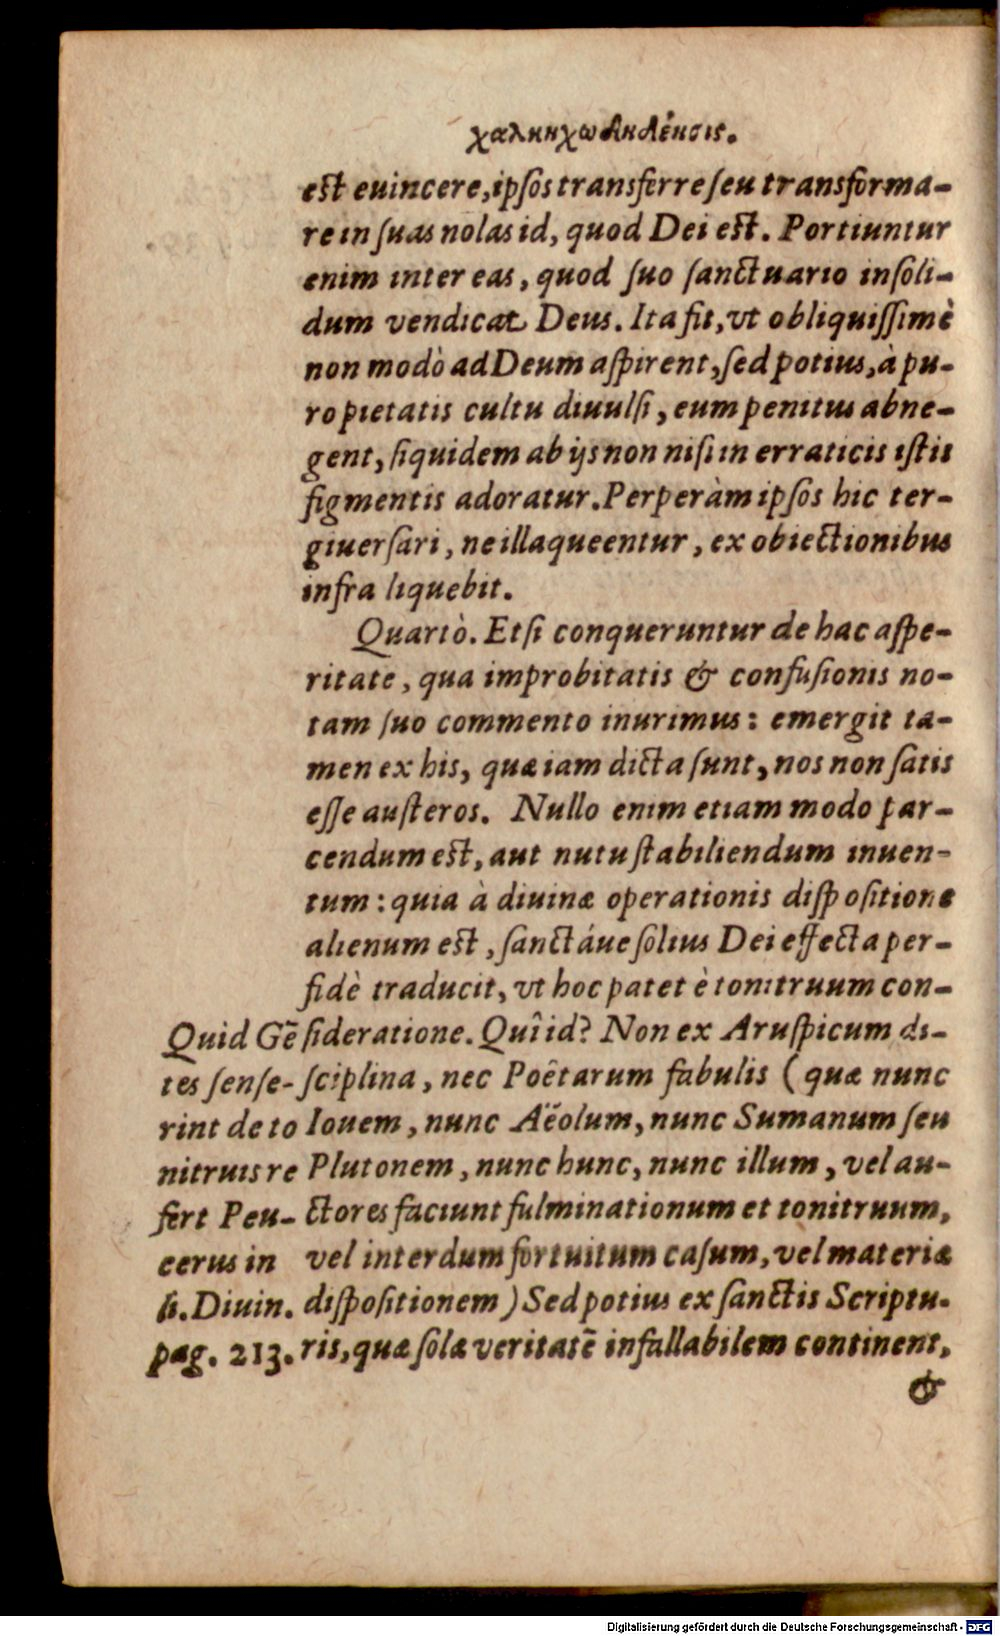 χαλκηχωδηλέησις.
est euincere, ipsos transferre seu transforma-
re in suas nolas id, quod Dei est. Portiuntur
enim inter eas, quod suo sanctuario insoli-
dum vendicat Deus. Ita fit, vt obliquissimè
non modò ad Deum aspirent, sed potius, à pu-
ro pietatis cultu diuulsi, eum penitus abne-
gent, siquidem ab ijs non nisi in erraticis istis
figmentis adoratur. Perperàm ipsos hic ter-
giuersari, ne illaqueentur, ex obiectionibus
infra liquebit.
Quartò. Etsi conqueruntur de hac aspe-
ritate, qua improbitatis & confusionis no-
tam suo commento inurimus: emergit ta-
men ex his, quæ iam dicta sunt, nos non satis
esse austeros. Nullo enim etiam modo par-
cendum est, aut nutu stabiliendum inuen-
tum: quia à diuinæ operationis dispositione
alienum est, sanctáue solius Dei effecta per-
fidè traducit, vt hoc patet è tonitruum con-
sideratione. Quî id? Non ex Aruspicum di-
sciplina, nec Poêtarum fabulis (quæ nunc
Iouem, nunc Aëolum, nunc Sumanum seu
Plutonem, nunc hunc, nunc illum, vel au-
ctores faciunt fulminationum et tonitruum,
vel interdum fortuitum casum, vel materiæ
dispositionem) Sed potius ex sanctis Scriptu-
ris, quæ solæ veritatē infallabilem continent,
&
Quid Gē
tes sense-
rint de to
nitruis re
fert Peu-
cerus in
li. Diuin.
pag. 213.
Digitalisierung gefördert durch die Deutsche Forschungsgemeinschaft - DFG